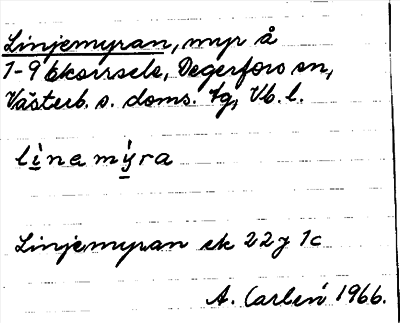 Linjemyran, myr å
1-9 Ekorrsele, Degerfors sn,
Västerb. s. doms. tg, Vb. l.
lìnemỳra
Linjemyran ek 22J 1c
A. Carlén 1966.